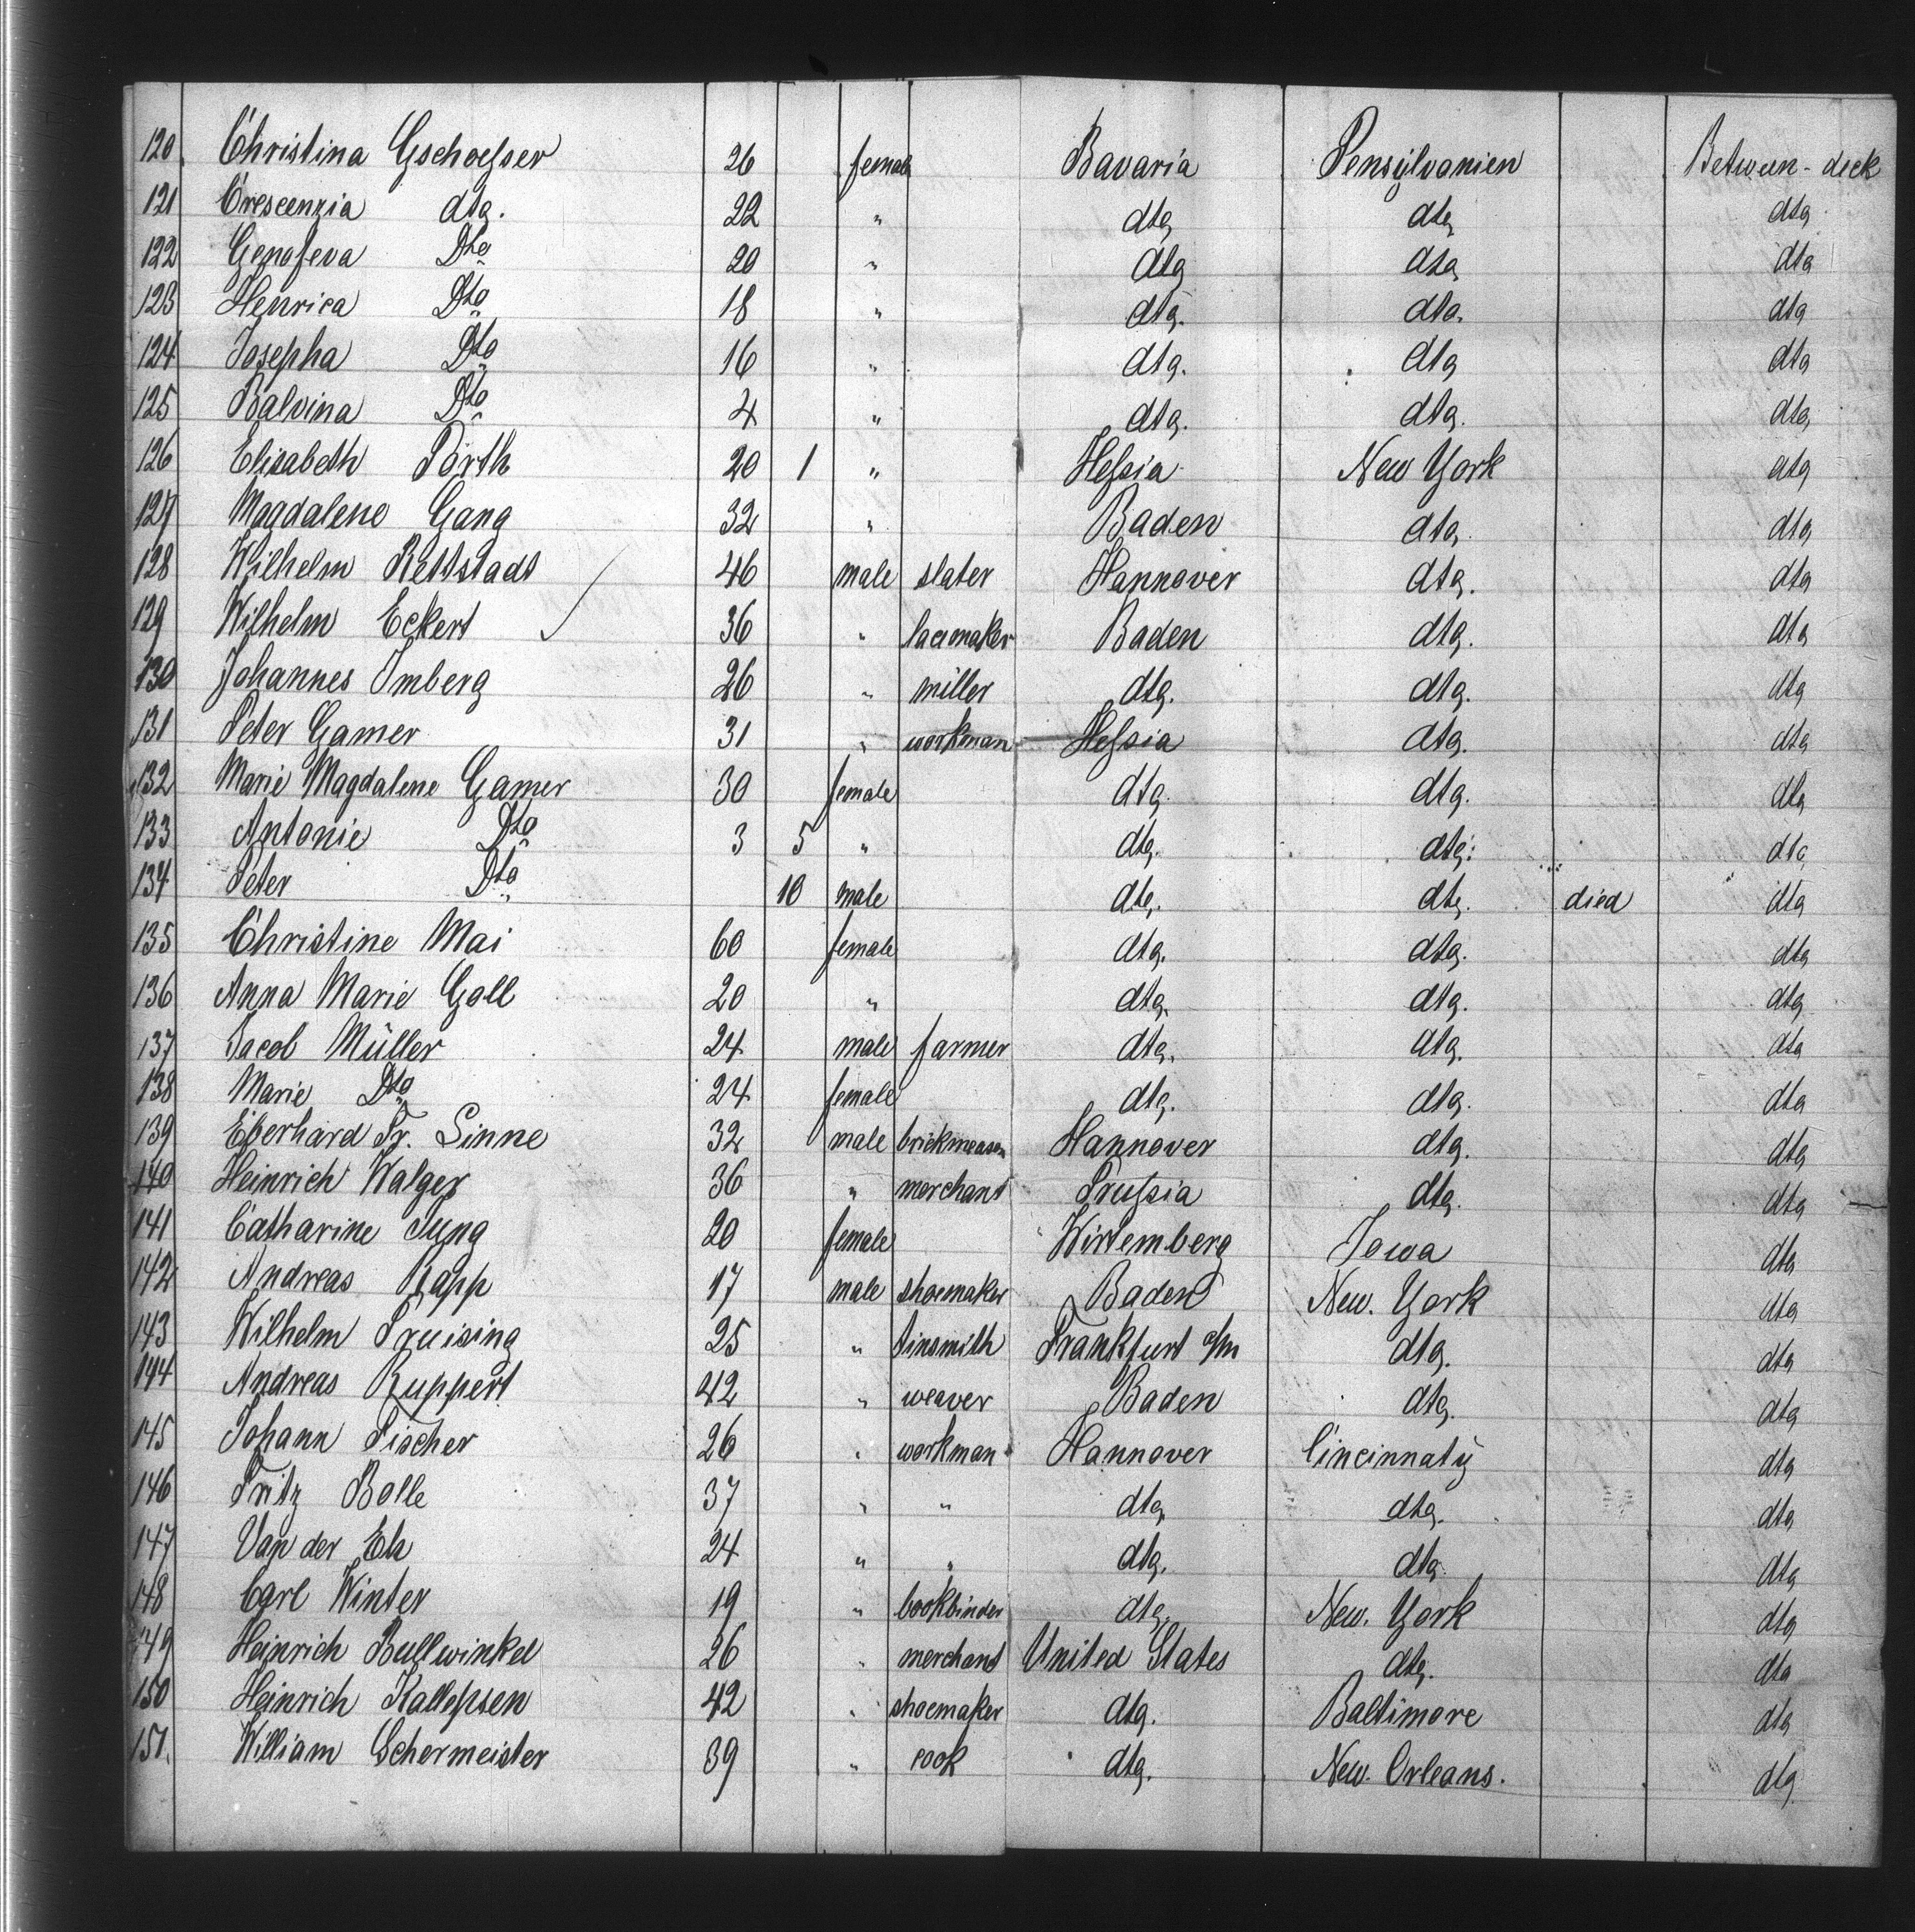 120. Christina Gschoeſser 26 female Bavaria Pensylvanien Between-deck
121 Crescenzia dto. 22 " dto dto dto
122 Genofeva Dto 20 " dto dto dto
123 Henrica Dto 18 " dto. dto. dto
124 Josepha Dto 16 " dto. dto dto
125 Balvina Dto 4 " dto. dto. dto
126 Elisabeth Pörth 20 1 " Heſsia New York dto
127 Magdalene Gang 32 " Baden dto. dto
128 Wilhelm Rettstadt 46 male slater Hannover dto. dto
129 Wilhelm Eckert 36 " lacemaker Baden dto. dto
130 Johannes Imberg 26 " miller dto. dto. dto
131 Peter Gamer 31 " workman Heſsia dto. dto
132 Marie Magdalene Gamer 30 female dto. dto. dto
133 Antonie Dto 3 5 " dto. dto. dto
134 Peter Dto 10 male dto. dto. died dto
135 Christine Mai 60 female dto. dto. dto
136 Anna Marie Goll 20 " dto. dto. dto
137 Jacob Müller 24 male farmer dto. dto. dto
138 Marie Dto 24 female dto. dto. dto
139 Eberhard Fr. Linne 32 male brickmeason Hannover dto. dto
140 Heinrich Walger 36 " merchant Pruſsia dto. dto
141 Catharine Jung 20 female Wirtemberg Iowa dto
142 Andreas Rapp 17 male shoemaker Baden New. York dto
143 Wilhelm Pruising 25 " tinsmith Frankfurt a/m dto. dto
144 Andreas Ruppert 42 " weaver Baden dto. dto
145 Johann Fischer 26 " workman Hannover Cincinnaty dto
146 Fritz Bolle 37 " " dto. dto. dto
147 Van der Eb 24 " " dto. dto dto
148 Carl Winter 19 " bookbinder dto. New. York dto
149 Heinrich Bullwinkel 26 " merchant United States dto. dto
150 Heinrich Kalleſsen 42 " shoemaker dto. Baltimore dto
151. William Schermeister 39 " cook dto. New. Orleans. dto